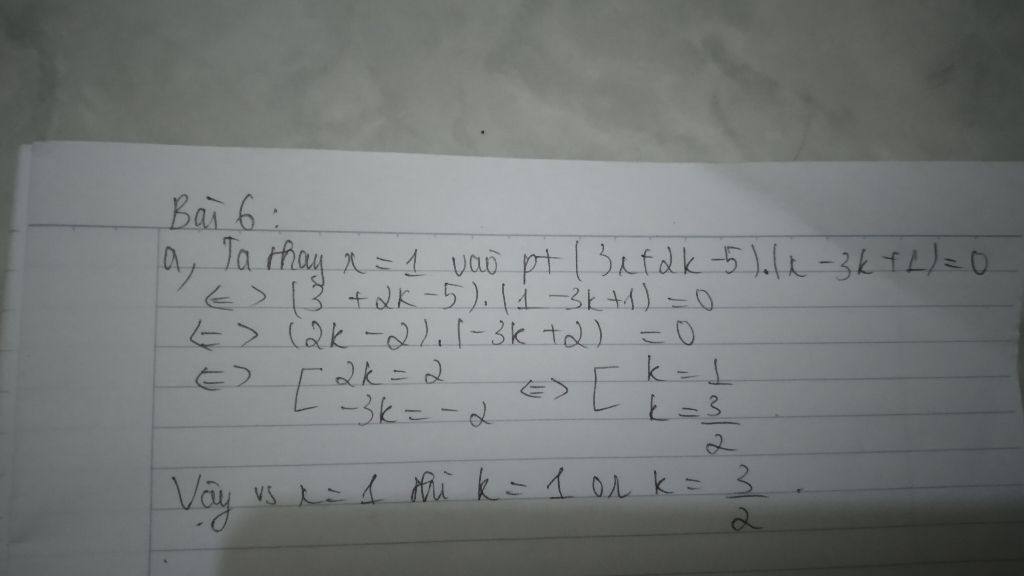 Bài 6:
a, Ta thay x = 1 vào pt (3x+2k-5).(x-3k+1)=0
<=> (3+2k-5).(1-3k+1)=0
<=> (2k-2).(-3k+2) =0
<=> [ 2k=2 <=> [ k=1
-3k=-2 k=3/2
Vậy vs x=1 thì k=1 or k= 3/2.